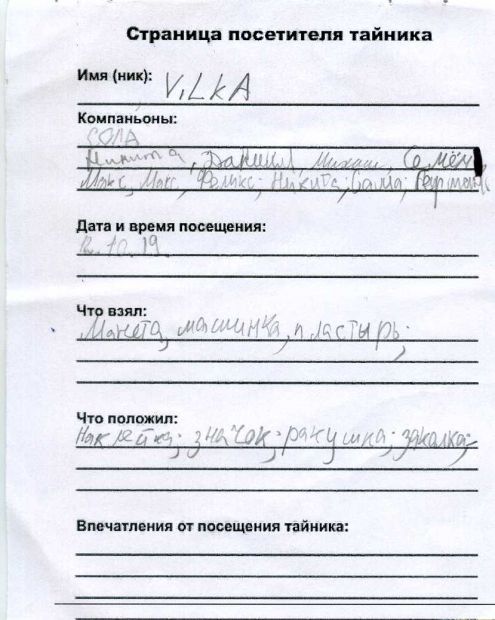 Страница посетителя тайника
Имя (ник): ViLkA
Компаньоны:
СОЛА
Никита, Даниил, Михаил, Семён
Макс, Макс, Феликс; Никита; Саша;
Дата и время посещения:
12.10.19.
Что взял:
Манета, машинка, пластырь;
Что положил:
Наклейка; значок; ракушка; заколка;
Впечатления от посещения тайника: